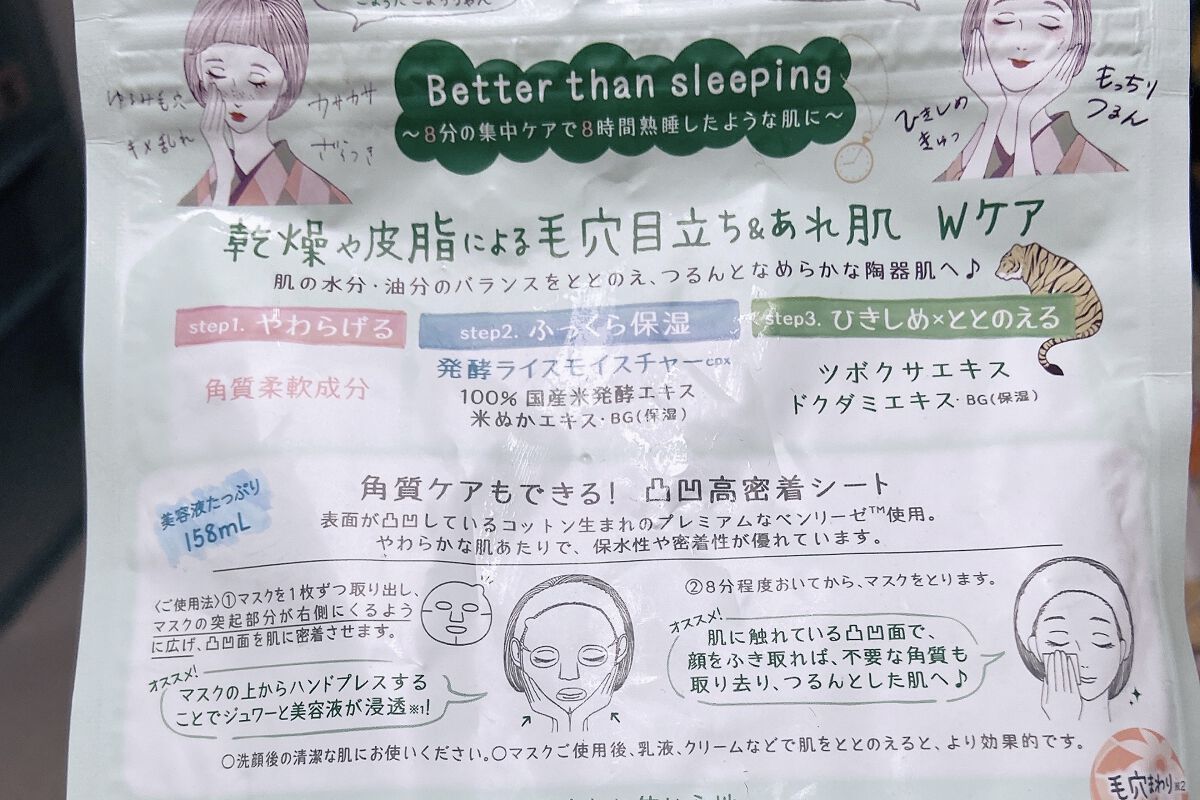 Better than sleeping
～8分の集中ケアで8時間熟睡したような肌に～
ゆるみ毛穴
カサカサ
キメ乱れ
ざらつき
ひきしめ
きゅっ
もっちり
つるん
乾燥や皮脂による毛穴目立ち&あれ肌 Wケア
肌の水分・油分のバランスをととのえ、つるんとなめらかな陶器肌へ♪
step1. やわらげる
角質柔軟成分
step2. ふっくら保湿
発酵ライスモイスチャーCPX
100% 国産米発酵エキス
米ぬかエキス・BG(保湿)
step3. ひきしめ×ととのえる
ツボクサエキス
ドクダミエキス・BG(保湿)
美容液たっぷり
158mL
角質ケアもできる! 凸凹高密着シート
表面が凸凹しているコットン生まれのプレミアムなベンリーゼ™使用。
やわらかな肌あたりで、保水性や密着性が優れています。
〈ご使用法〉①マスクを1枚ずつ取り出し、
マスクの突起部分が右側にくるよう
に広げ、凸凹面を肌に密着させます。
オススメ!
マスクの上からハンドプレスする
ことでジュワーと美容液が浸透※1!
②8分程度おいてから、マスクをとります。
オススメ!
肌に触れている凸凹面で、
顔をふき取れば、不要な角質も
取り去り、つるんとした肌へ♪
○洗顔後の清潔な肌にお使いください。○マスクご使用後、乳液、クリームなどで肌をととのえると、より効果的です。
毛穴まわり※2